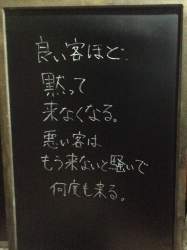 良い客ほど、
黙って
来なくなる。
悪い客は
もう来ないと騒いで
何度も来る。